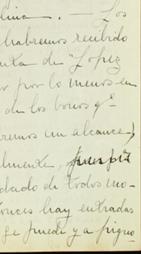 lina. — Los
habremos recibido
nta de "Lopez
r por lo menos en
de los bonos q.e
remos un alcance,
lmente,
dado de todos mo-
tonces hay entradas
se puede ya